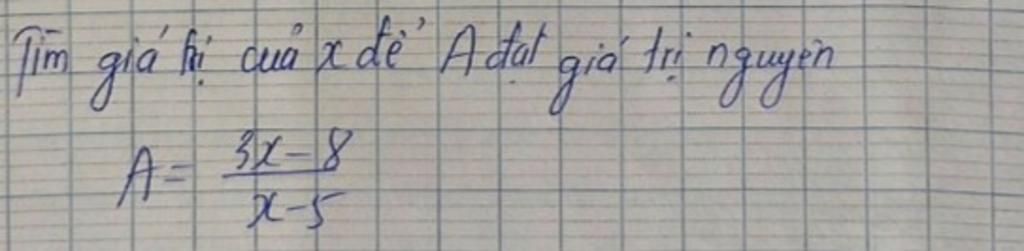 Tìm giá trị của x để A đạt giá trị nguyên
A = \frac{3x-8}{x-5}